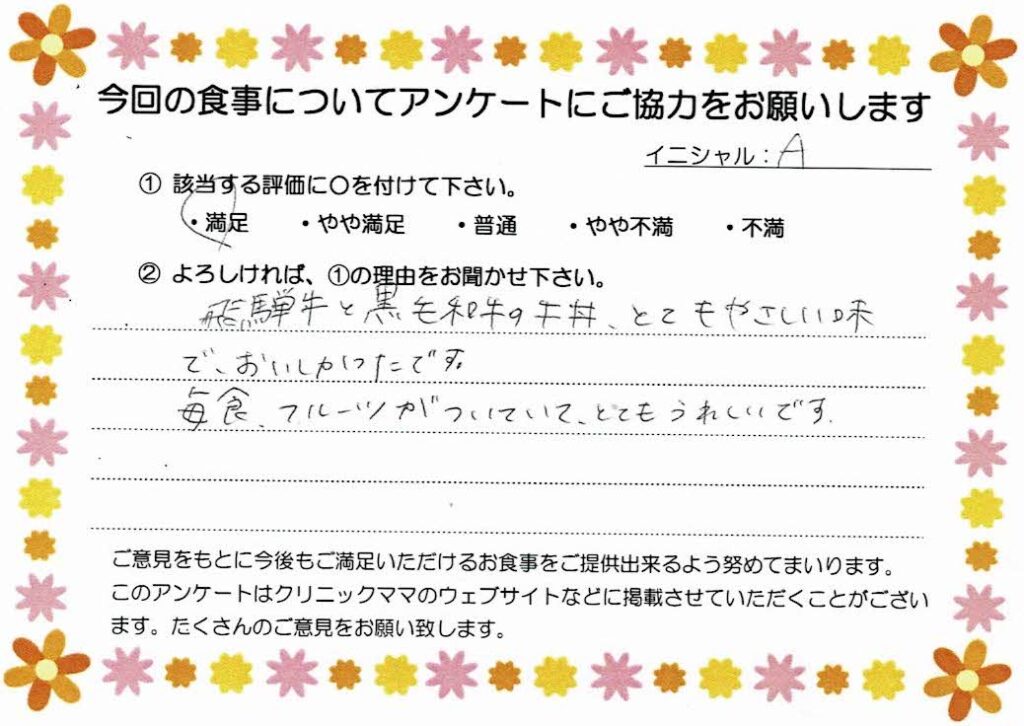 今回の食事についてアンケートにご協力をお願いします
イニシャル：A
① 該当する評価に〇を付けて下さい。
・満足 ・やや満足 ・普通 ・やや不満 ・不満
② よろしければ、①の理由をお聞かせ下さい。
飛騨牛と黒毛和牛の牛丼、とてもやさしい味
で、おいしかったです。
毎食、フルーツがついていて、とてもうれしいです。
ご意見をもとに今後もご満足いただけるお食事をご提供出来るよう努めてまいります。
このアンケートはクリニックママのウェブサイトなどに掲載させていただくことがござい
ます。たくさんのご意見をお願い致します。